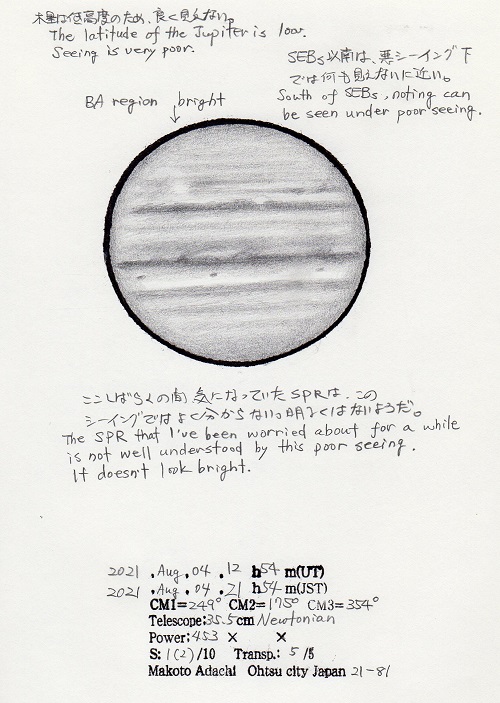 木星は低高度のため、良く見えない。
The latitude of the Jupiter is low.
Seeing is very poor.
SEBs以南は、悪シーイング下
では何も見えないに近い。
South of SEBs, noting can
be seen under poor seeing.
BA region bright
ここしばらくの間、気になっていたSPRは、この
シーイングではよく分からない。明るくはないようだ。
The SPR that I've been worried about for a while
is not well understood by this poor seeing.
It doesn't look bright.
2021 . Aug . 04 . 12 h 54 m(UT)
2021 . Aug . 04 . 21 h 54 m(JST)
CM1=249° CM2=175° CM3=354°
Telescope:35.5cm Newtonian
Power:453 × ×
S: 1(2)/10 Transp.: 5/5
Makoto Adachi Ohtsu city Japan 21-81